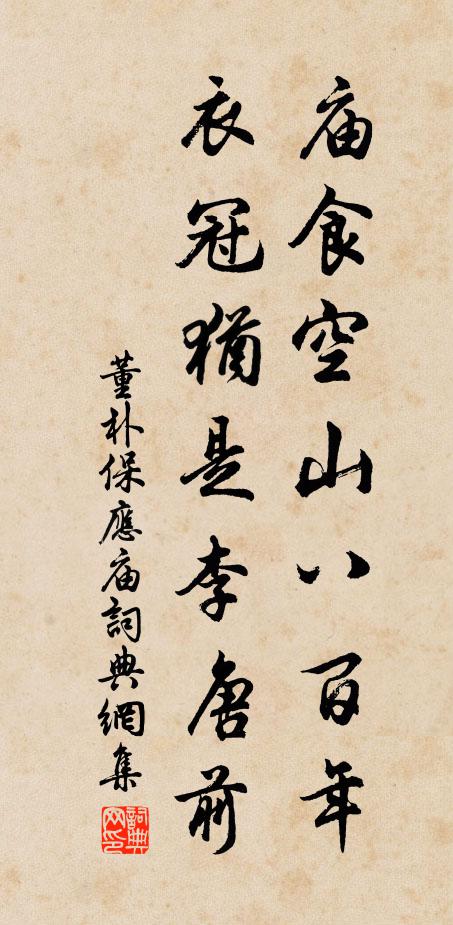 庙食空山八百年
衣冠猶是李唐前
董朴保應庙詞典網集
詞典网印